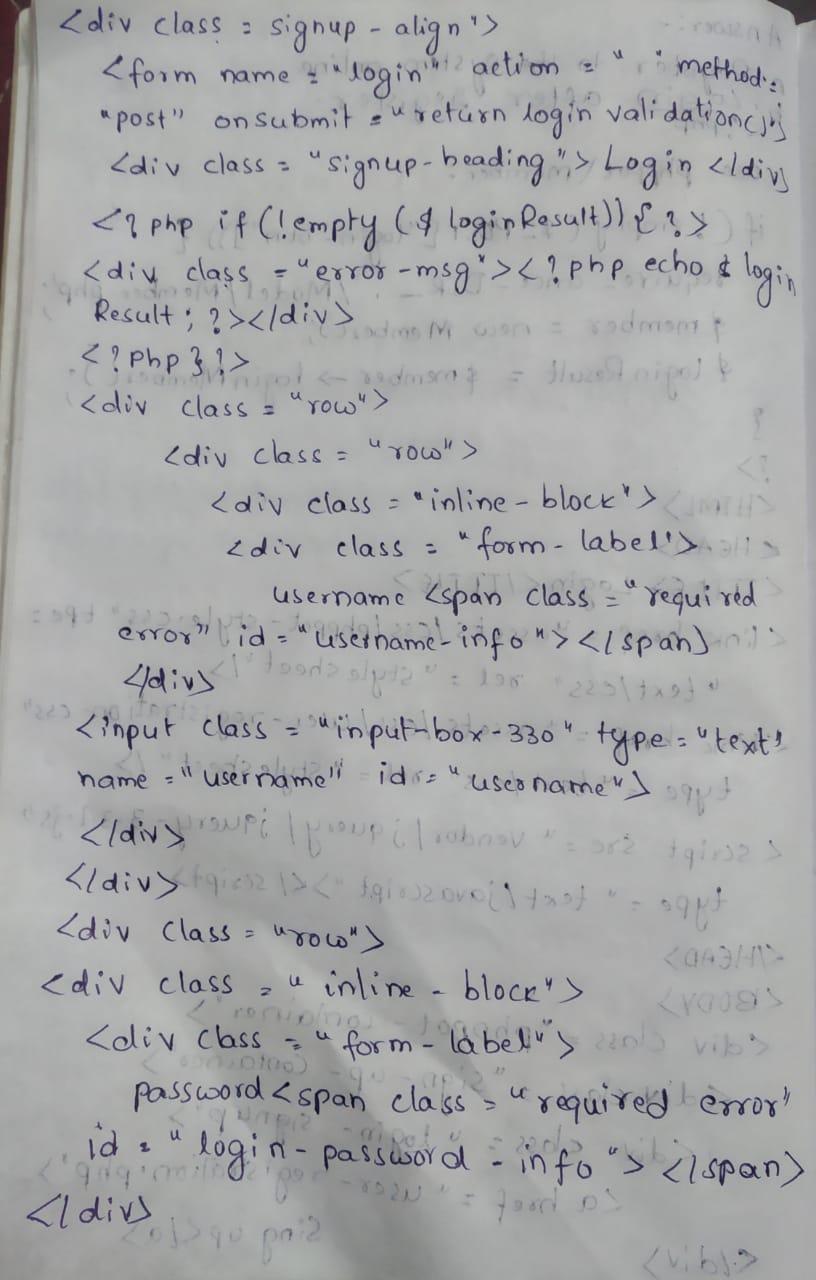 <div class = signup - align">
<form name = "login" action = " " method =
"post" onsubmit = "return login validation()">
<div class = "signup-heading"> Login </div>
<? php if (!empty ($ loginResult)) { ?>
<div class = "error -msg"><? php echo $ login
Result; ?></div>
<? php } ?>
<div class = "row">
<div class = "row">
<div class = "inline - block">
<div class = "form - label">
username <span class = "required
error" id = "username-info"></span>
</div>
<input class = "input-box-330" type = "text"
name = "username" id = "username">
</div>
</div>
<div class = "row">
<div class = " inline - block">
<div class = "form - label">
password <span class = "required error"
id = "login - password - info"> </span>
</div>